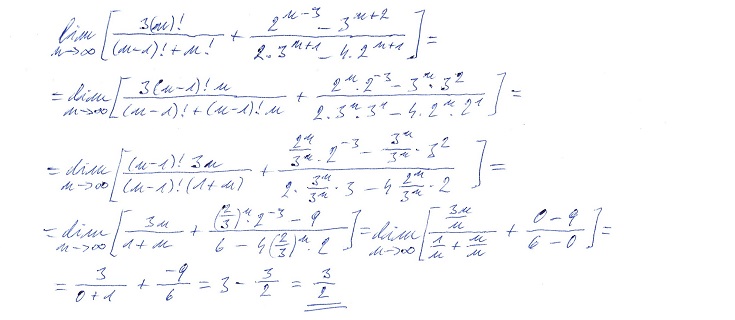 lim n→∞ [ 3(n)! / ((n-1)! + n!) + (2^(n-3) - 3^(n+2)) / (2·3^(n+1) - 4·2^(n+1)) ] =
= lim n→∞ [ 3(n-1)! n / ((n-1)! + (n-1)! n) + (2^n·2^(-3) - 3^n·3^2) / (2·3^n·3^1 - 4·2^n·2^1) ] =
= lim n→∞ [ (n-1)! 3n / ((n-1)! (1+n)) + (2^n/3^n·2^(-3) - 3^n/3^n·3^2) / (2·3^n/3^n·3 - 4 2^n/3^n·2) ] =
= lim n→∞ [ 3n / (1+n) + ((2/3)^n·2^(-3) - 9) / (6 - 4(2/3)^n·2) ] = lim n→∞ [ (3n/n) / (1/n + n/n) + (0-9) / (6-0) ] =
= 3 / (0+1) + -9/6 = 3 - 3/2 = 3/2